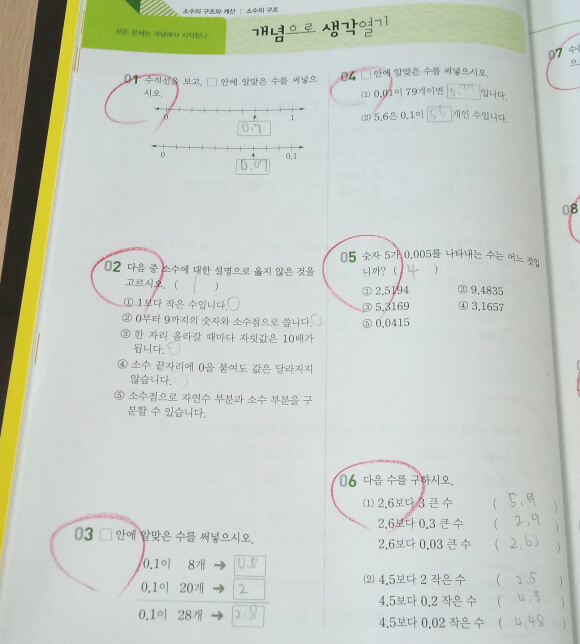 소수의 구조와 계산 | 소수의 구조
모든 문제는 개념에서 시작된다.
개념으로 생각열기
01 수직선을 보고, □ 안에 알맞은 수를 써넣으
시오.
0 1
0.7
0 0.1
0.07
02 다음 중 소수에 대한 설명으로 옳지 않은 것을
고르시오. ( 1 )
① 1보다 작은 수입니다.
② 0부터 9까지의 숫자와 소수점으로 씁니다.
③ 한 자리 올라갈 때마다 자릿값은 10배가
됩니다.
④ 소수 끝자리에 0을 붙여도 값은 달라지지
않습니다.
⑤ 소수점으로 자연수 부분과 소수 부분을 구
분할 수 있습니다.
03 □ 안에 알맞은 수를 써넣으시오.
0.1이 8개 → 0.8
0.1이 20개 → 2
0.1이 28개 → 2.8
04 □ 안에 알맞은 수를 써넣으시오.
(1) 0.01이 79개이면 입니다.
(2) 5.6은 0.1이 56 개인 수입니다.
05 숫자 5가 0.005를 나타내는 수는 어느 것입
니까? ( 4 )
① 2.5194 ② 9.4835
③ 5.3169 ④ 3.1657
⑤ 0.0415
06 다음 수를 구하시오.
(1) 2.6보다 3 큰 수 ( 5.9
2.6보다 0.3 큰 수 ( 2.9
2.6보다 0.03 큰 수 ( 2.63
(2) 4.5보다 2 작은 수 ( 2.5
4.5보다 0.2 작은 수 ( 4.3
4.5보다 0.02 작은 수 ( 4.48
07
08